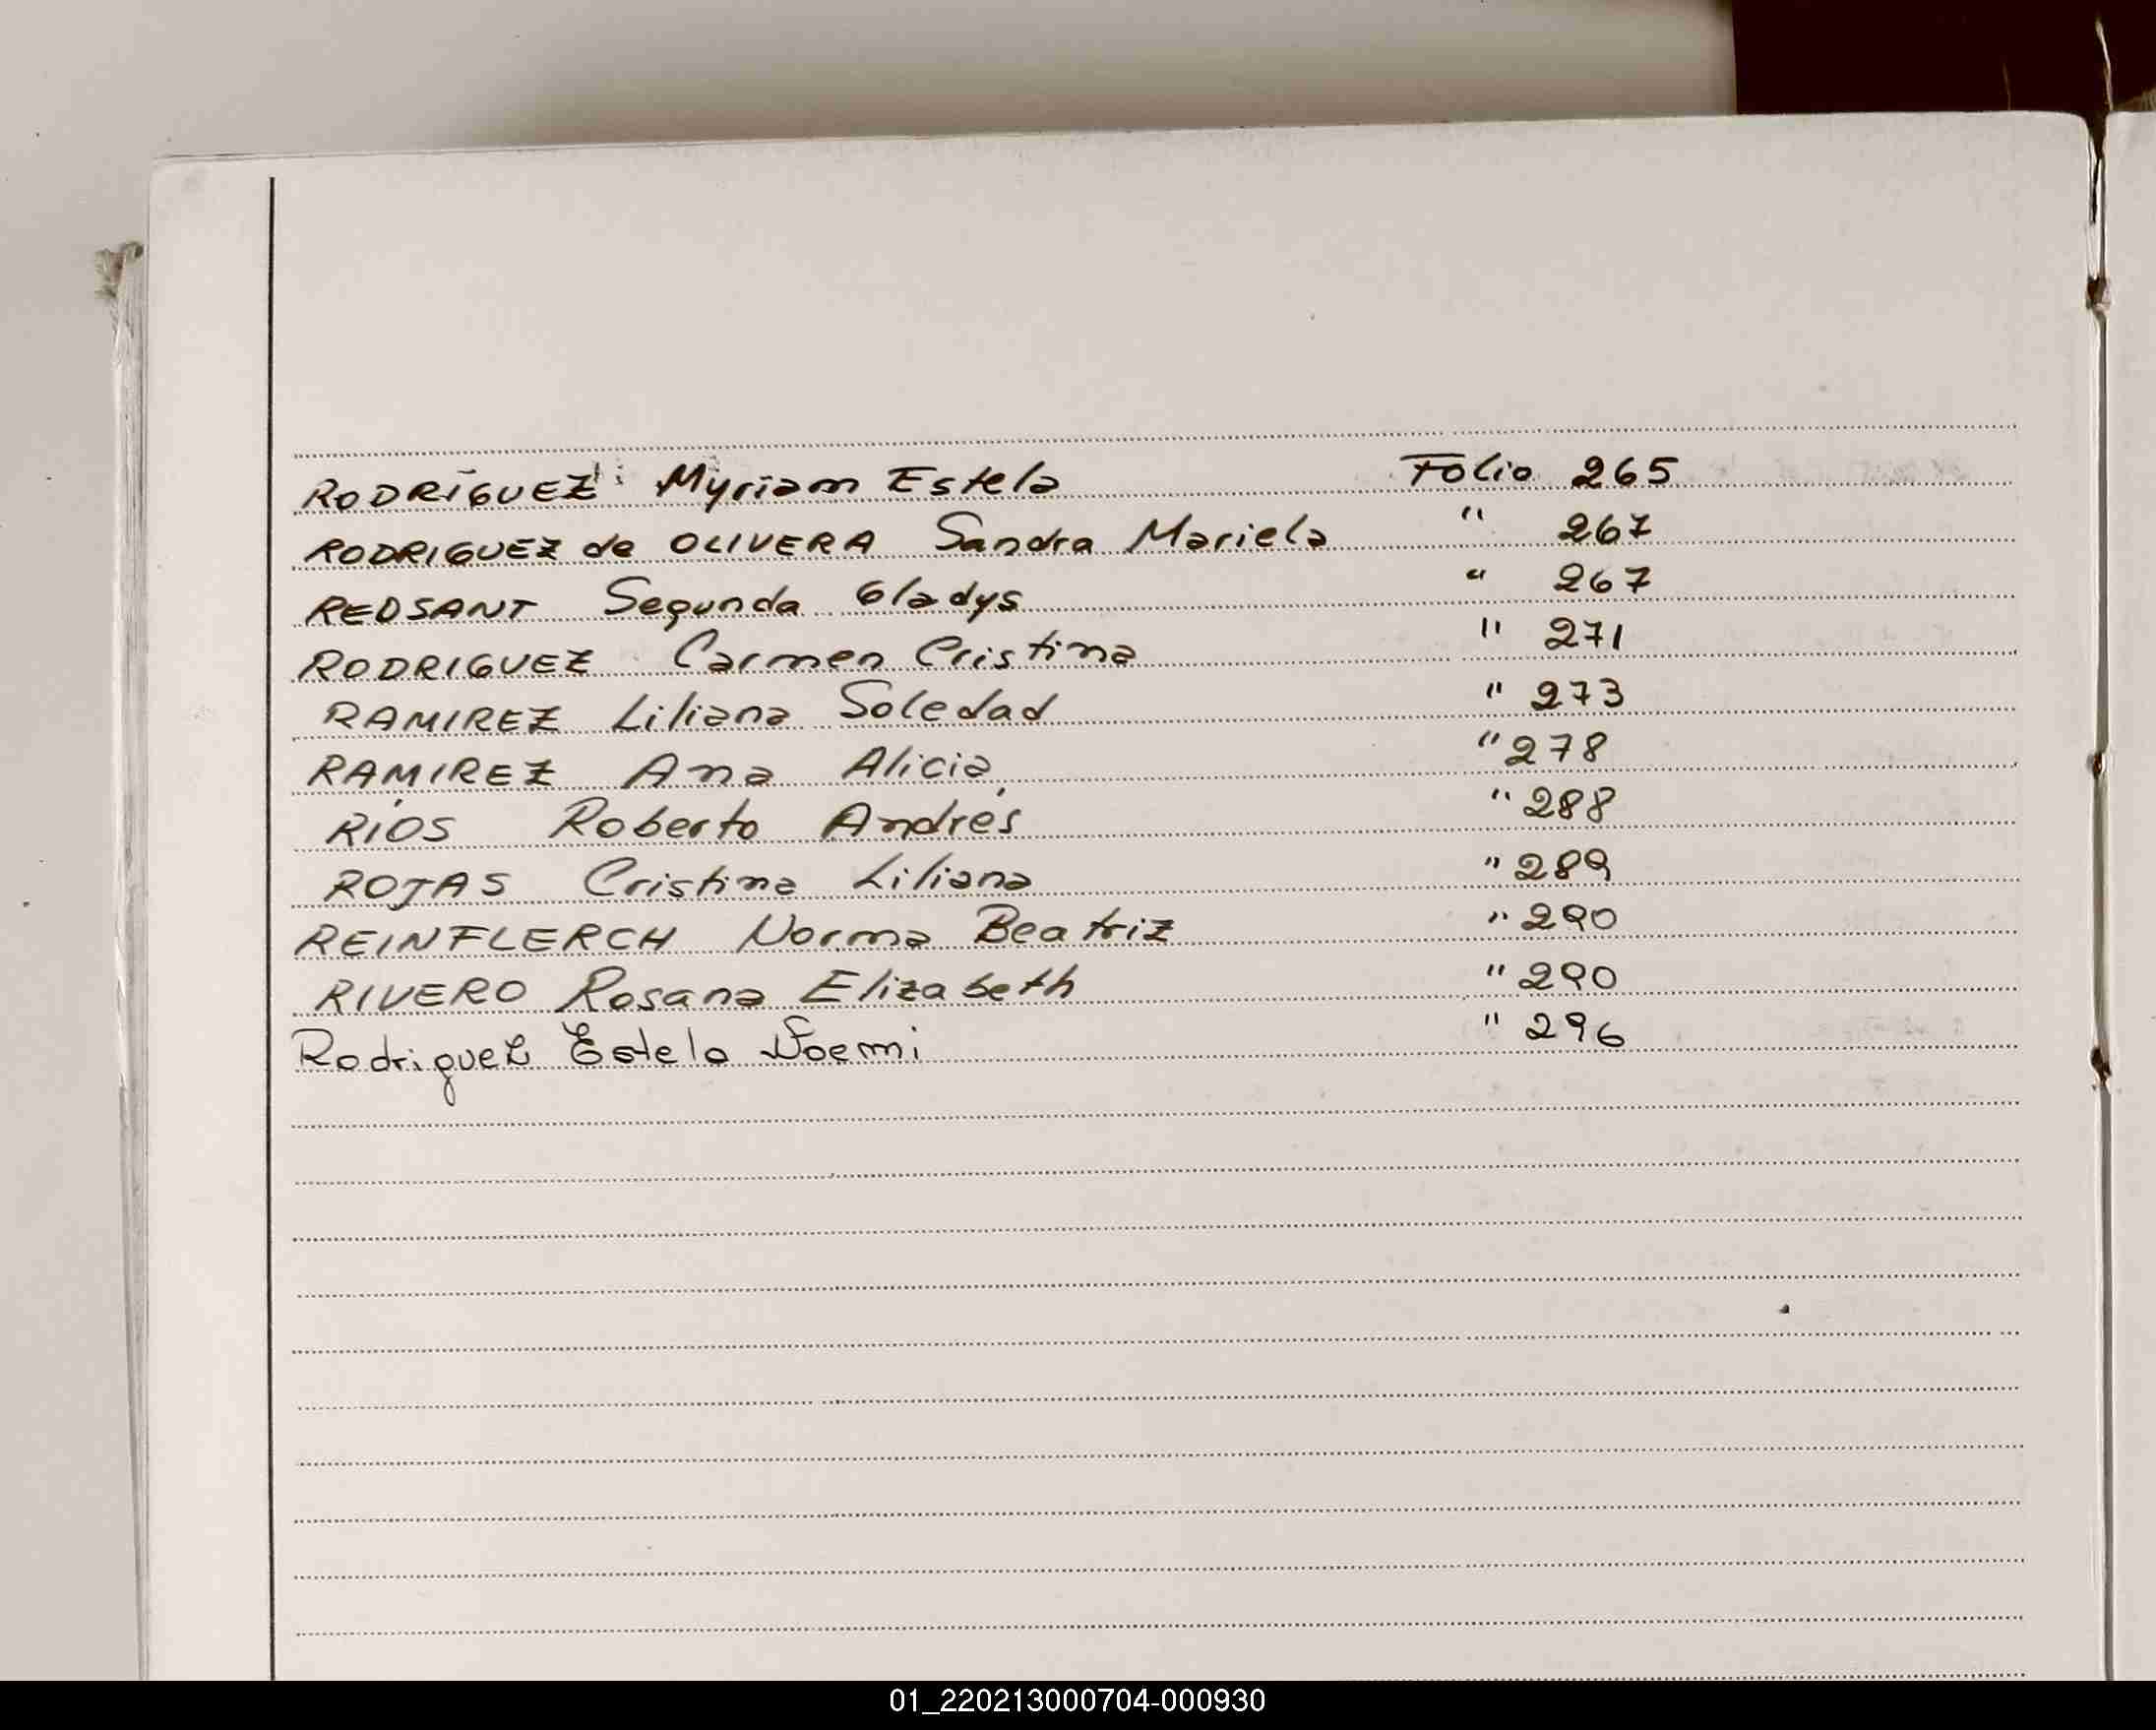 RODRÍGUEZ: Myriam Estela Folio 265
RODRIGUEZ de OLIVERA Sandra Mariela " 267
REDSANT Segunda Gladys " 267
RODRIGUEZ Carmen Cristina " 271
RAMIREZ Liliana Soledad " 273
RAMIREZ Ana Alicia " 278
RÍOS Roberto Andrés " 288
ROJAS Cristina Liliana " 289
REINFLERCH Norma Beatriz " 290
RIVERO Rosana Elizabeth " 290
Rodriguez Estela Noemi " 296
01_220213000704-000930